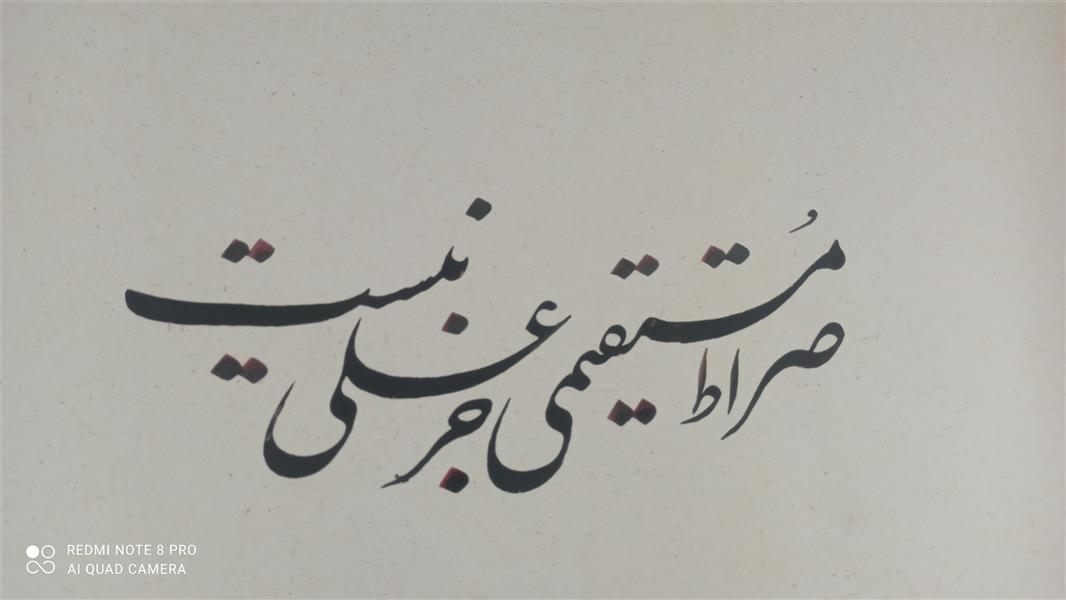 صراط مُستقیمی جز علی نیست
REDMI NOTE 8 PRO
AI QUAD CAMERA